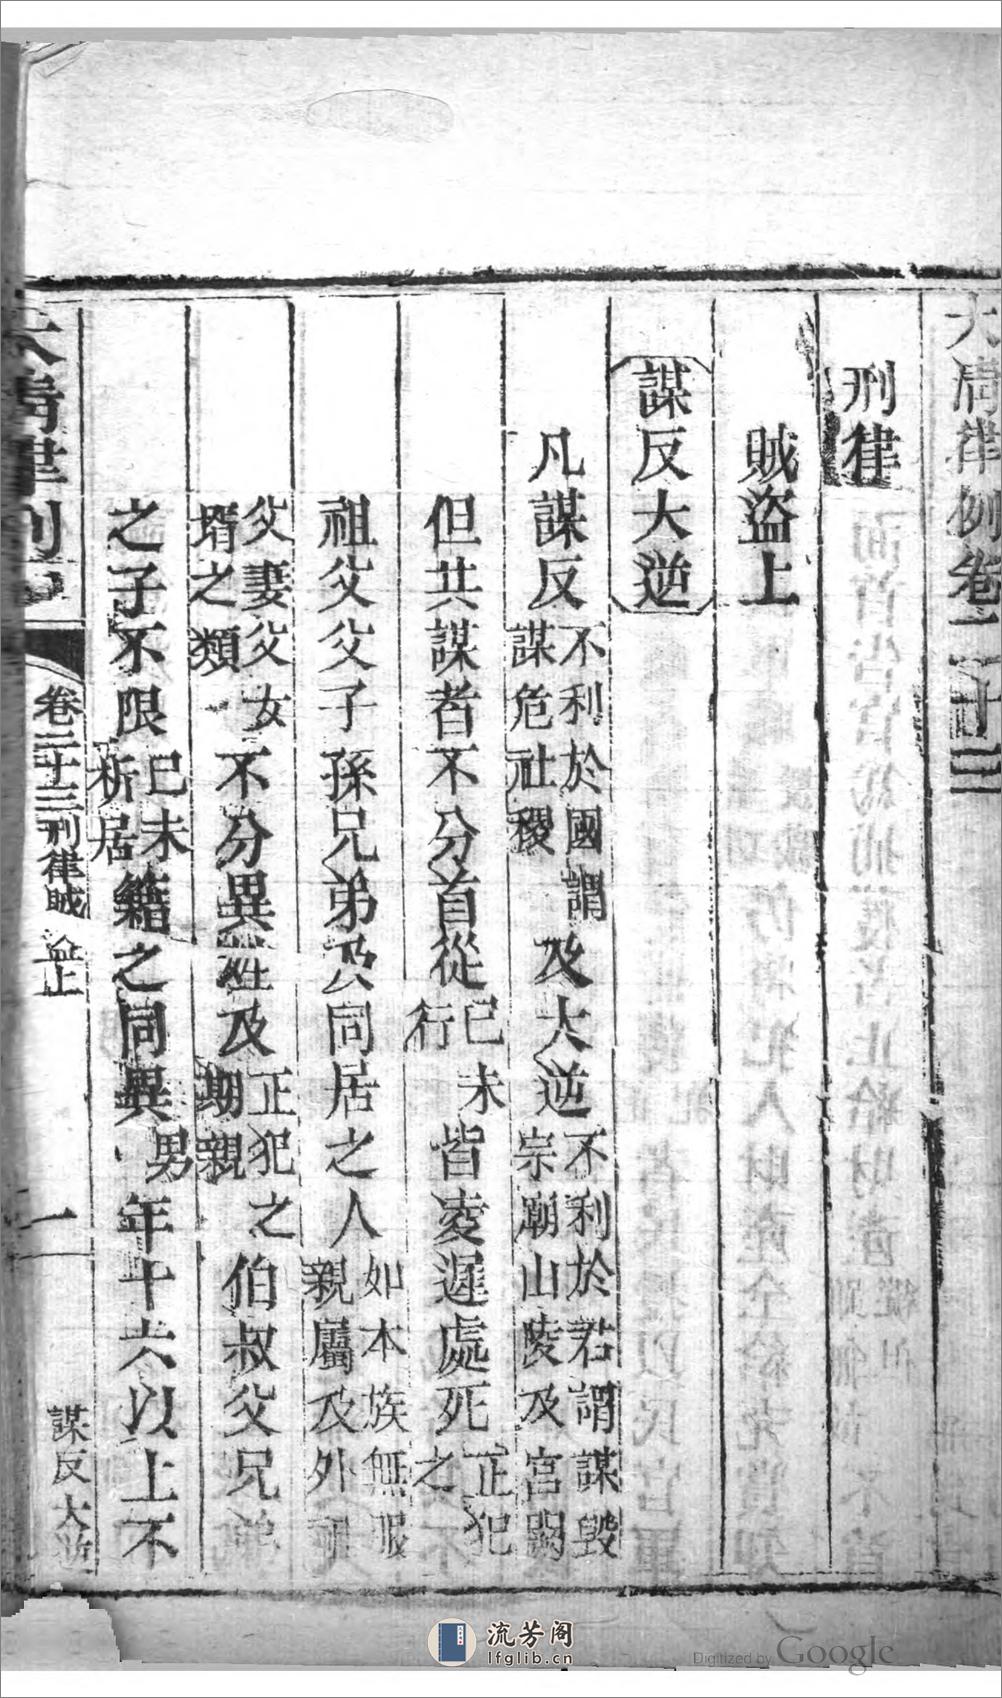 大清律例卷二十三
刑律
賊盜上
謀反大逆
凡謀反不利於國謂謀危社稷及大逆不利於君謂謀毀宗廟山陵及宮闕
但共謀者不分首從已未行皆凌遲處死正犯之
祖父父子孫兄弟及同居之人如本族無服親屬及外
父妻父女壻之類不分異姓及正犯之期親伯叔父兄
之子不限已未析居籍之同異男年十六以上不
大清律例
卷二十三刑律賊盜上
一
謀反大逆
流芳阁
lfglib.cn
Digitized by Google